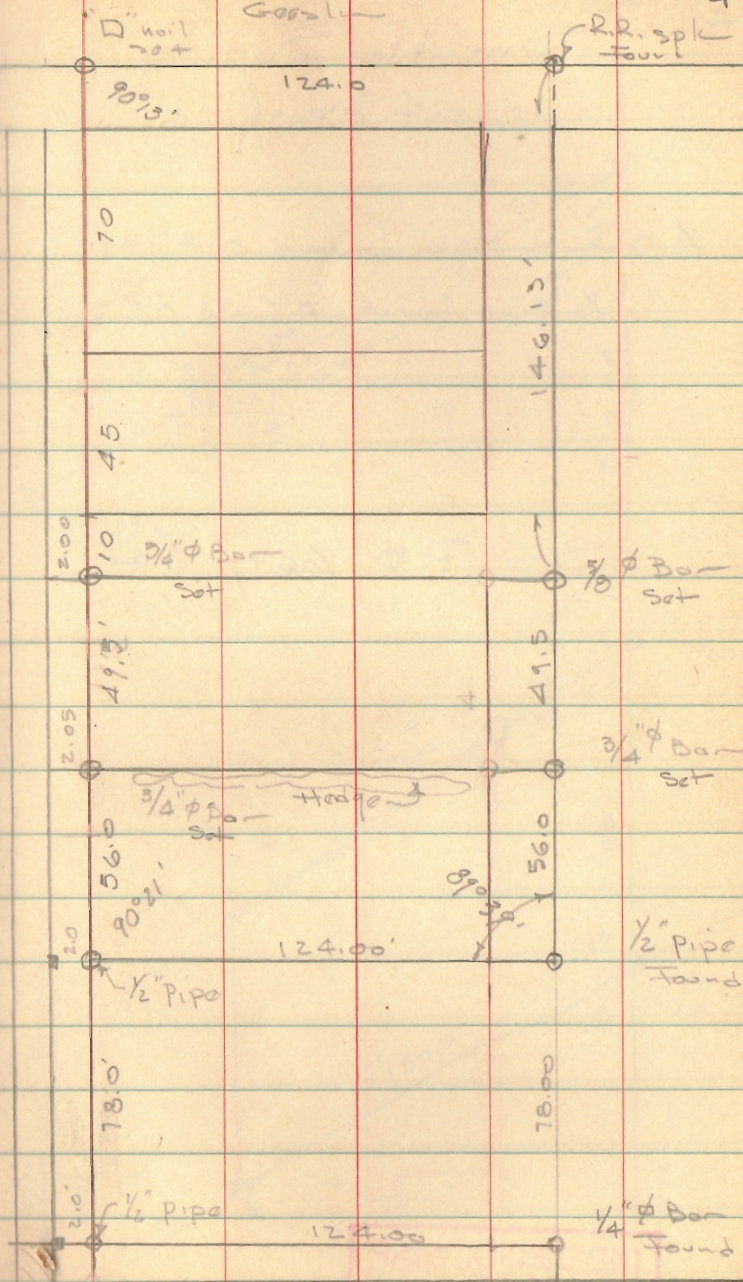 "□" nail
set
R.R. spk
Found
124.0
90°13'
70
146.13'
45
2.00
10
3/4" ⌀ Bar
Set
⌀ Bar
Set
49.5'
49.5
2.05
3/4" ⌀ Bar
Set
3/4" ⌀ Bar
Set
Hedge
56.0
90°21'
56.0
2.0
124.00'
1/2" pipe
Found
1/2" pipe
78.0'
78.00
2.0'
1/2" pipe
124.00
1/4" ⌀ Bar
Found